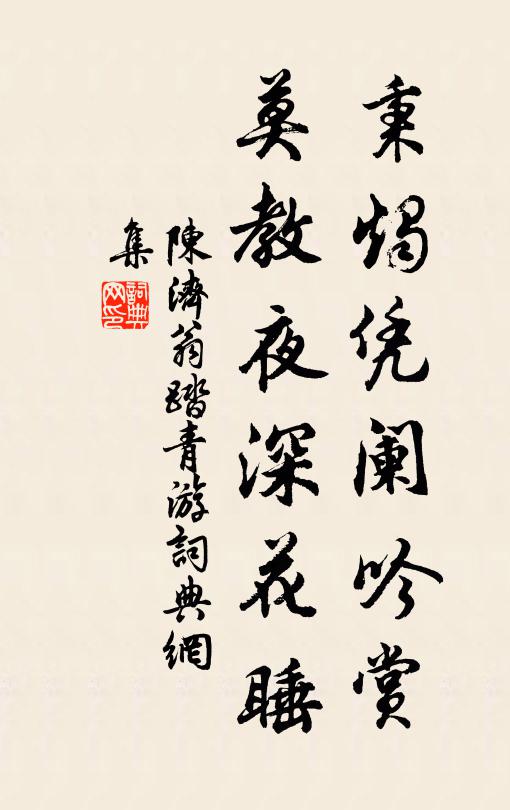 秉烛凭阑吟赏
莫教夜深花睡
陳濟翁踏青游詞典網
集
詞典
网印